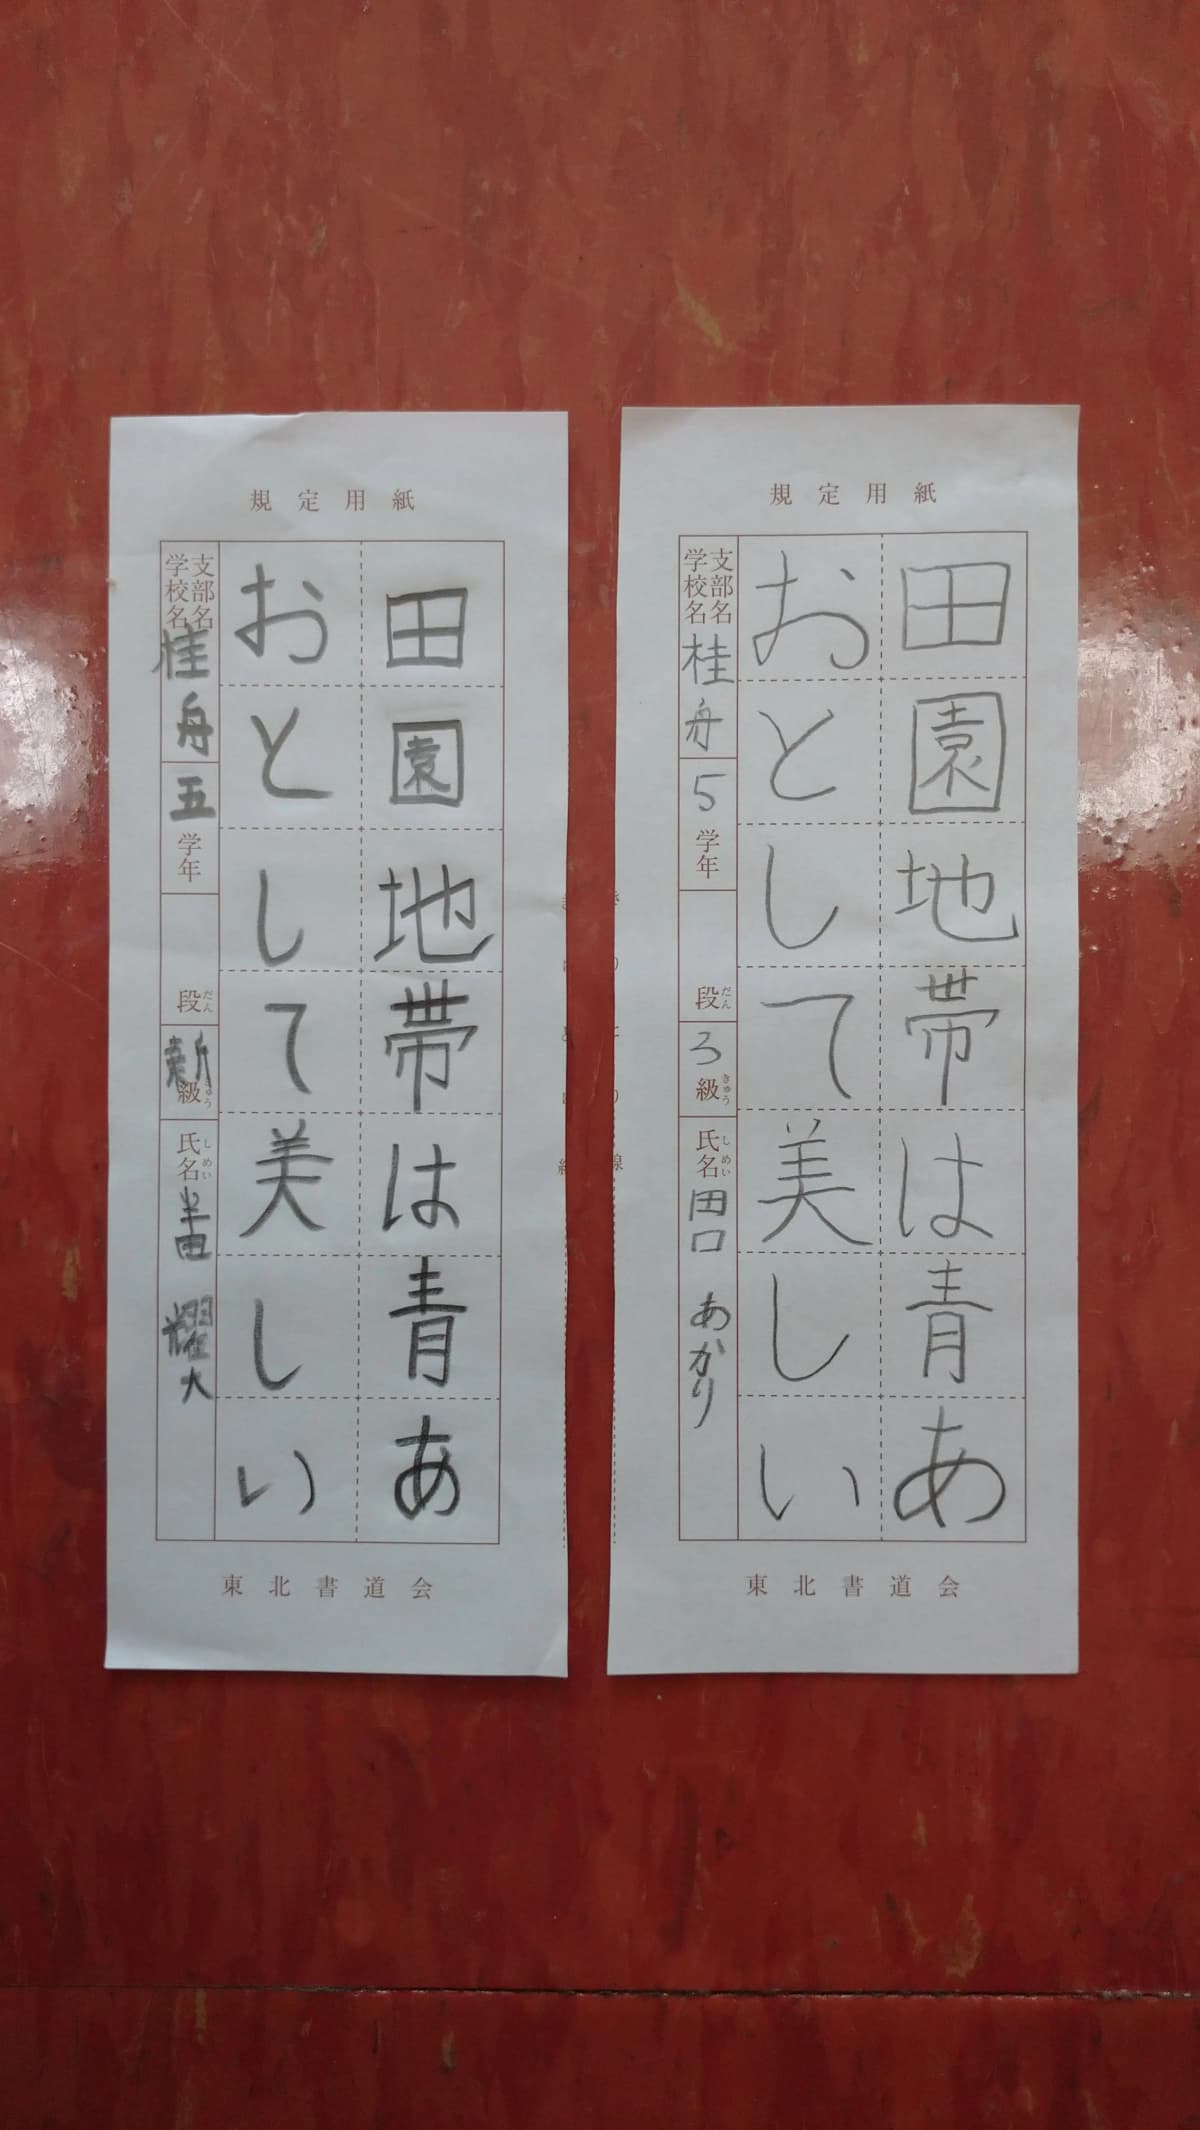 規定用紙
田園地帯は青あ
おとして美しい
支部名
学校名
桂舟
五学年
段
だん
新級
きゅう
氏名
しめい
半田 耀大
東北書道会
規定用紙
田園地帯は青あ
おとして美しい
支部名
学校名
桂舟
5学年
段
だん
3級
きゅう
氏名
しめい
田口 あかり
東北書道会